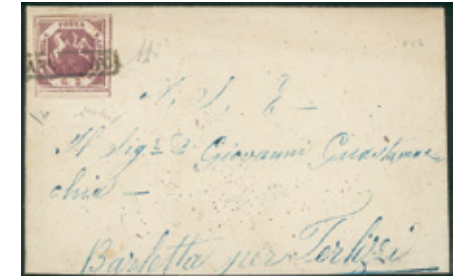 A. S. E. —
Il Sig.r D. Giovanni Guastamac
chia —
Barletta per Terlizzi